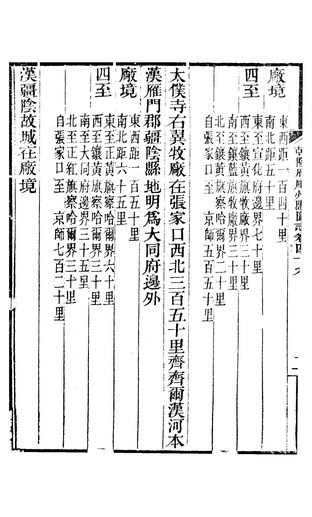 廠境
東西距一百四十里
南北距一百五十里
四至
東至宣化府邊界七十里
西至鑲黃旗牧廠界三十里
南至鑲藍旗牧廠界三十里
北至鑲黃旗察哈爾界
自張家口至京師
太僕寺右翼牧廠在張家口西北三百五十里齊齊爾漢河本
漢雁門郡彊陰縣地明為大同府邊外
廠境
東西距一百五十里
南北距六十五里
四至
東至正黃旗察哈爾界六十里
西至鑲黃旗察哈爾界三十里
南至大同府邊界三十五里
北至正紅旗察哈爾界三十里
自張家口至京師七百二十里
漢彊陰故城在廠境